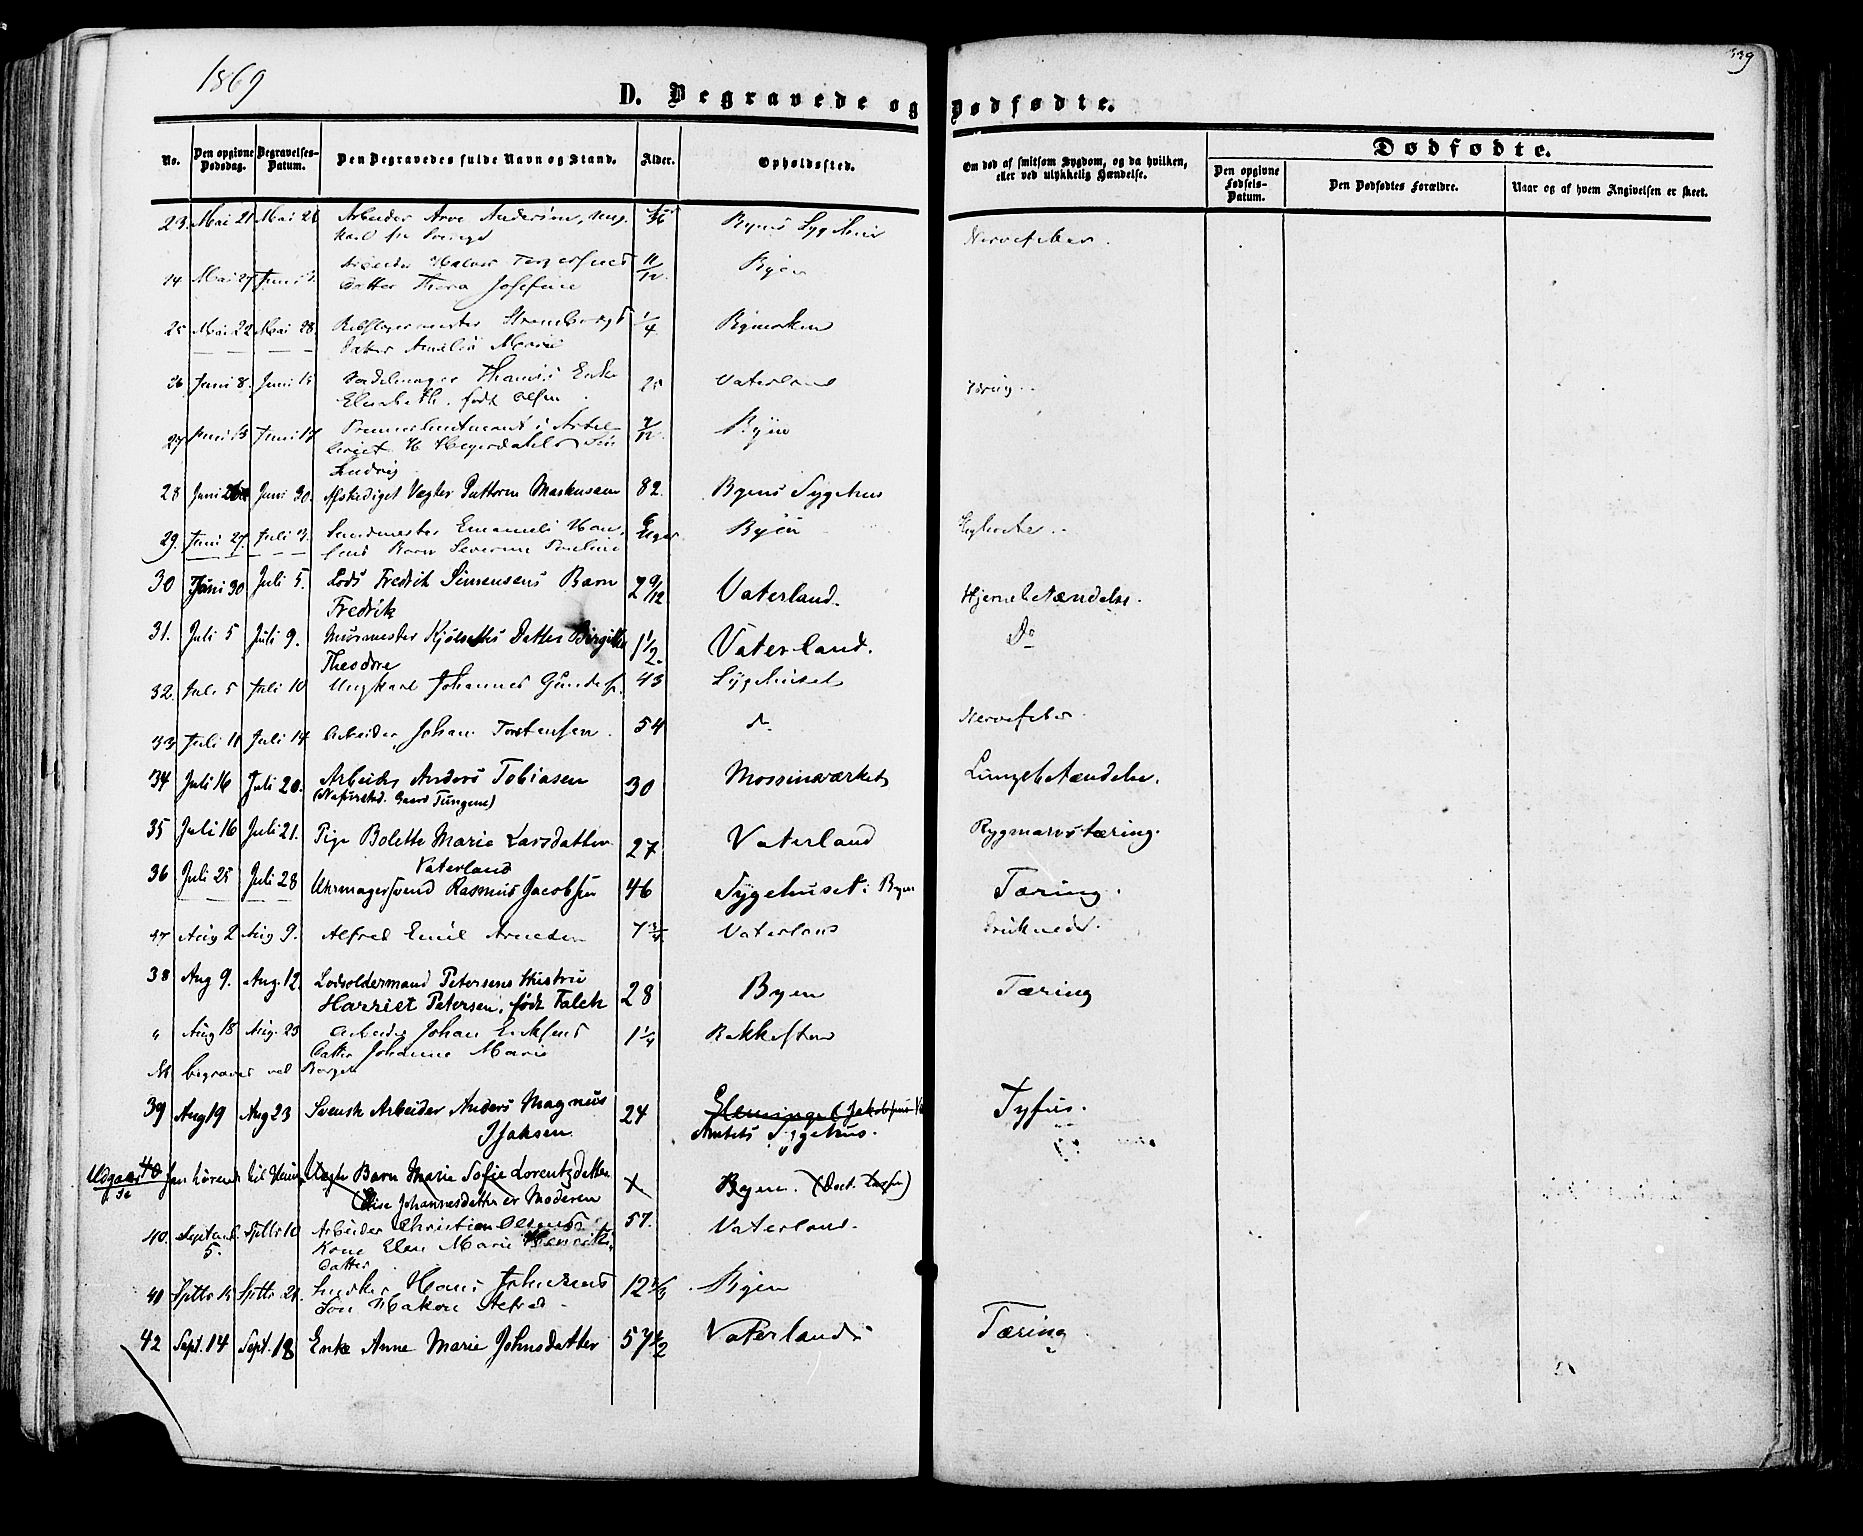 1869
339
D. Begravede og Dødfødte.
No. Den opgivne Dødsdag. Begravelses-Datum. Den Begravedes fulde Navn og Stand. Alder. Opholdssted. Om død af smitsom Sygdom, og da hvilken, eller ved ulykkelig Hændelse. Dødfødte. Den opgivne Fødsels-Datum. Den Dødfødtes Forældre. Naar og af hvem Angivelsen er skeet.
23. Mai 21 Mai 26 Arbeider Arve Andersen, ung- Byens Sygehus Nervefeber.
karl fra
24 Mai 27 Juni 3. Arbeider Halvor Terjersens 11/12 Byen
Datter Thora Josefine
25 Mai 22 Mai 28. Rebslagermester Strømbergs 1/4 Bymarken
Datter Amalie Marie
26 Juni 8. Juni 15 Sadelmager Enke 25 Vaterland Tæring.
Elisabeth, født Olsen.
27 Juni 13 Juni 17 Premierlieutenant i Artil- 7/12 Byen
leriet H. Heyerdahls Søn
Ludvig
28 Juni 26 Juni 30. Afskediget Vægter Guttorm Markussen 82. Byens Sygehus
29. Juni 27. Juli 3. Emanuel Han- 6 Uger Byen
sens Barn Severine Pauline
30 Juni 30 Juli 5. Lods Fredrik Simensens Barn 2 9/12 Vaterland. Hjernebetændelse.
Fredrik
31. Juli 5 Juli 9. Murmester Kjølseths Datter Birgitte 1 1/2. Vaterland. Do
Theodore
32. Juli 5 Juli 10 Ungkarl Johannes Gunders. 43 Sygehuset
33 Juli 11 Juli 14 Arbeider Johan Torstensen. 54 do Nervefeber.
34 Juli 16 Juli 20. Arbeider Anders Tobiasen 30 Mossinværket Lungebetændelse.
35 Juli 16 Juli 21. Pige Bolette Marie Larsdatter 27 Vaterland Rygmarvstæring.
Vaterland
36 Juli 25 Juli 28 Uhrmagersvend Rasmus Jacobsen 46 Sygehuset i Byen Tæring.
37 Aug 2 Aug 9. Alfred Emil Arnesen 7 3/4 Vaterland Druknede.
38 Aug 9. Aug. 12. Lodsoldermand Petersens Hustru 28 Byen Tæring
Harriet Petersen, født Falck
" Aug 18 Aug. 23 Arbeider Johan Eriksens 1 1/4 Bakkesten
Datter Johanne Marie
NB. begravet ved Borge
39 Aug 19 Aug 23 Svensk Arbeider Anders Magnus 24 Tyfus.
Isaksen. Amtets Sygehus.
Udgaar 40 Barn Marie Sofie Lorentzdatter Byen.
(Elise Johannesdatter er Moderen
40. Septemb. 5. Septb 10 Arbeider Christian Olsens 57. Vaterland.
Kone Elen Marie Henriks-
datter
41 Septb 15 Septb 21. Snedker Hans Johnsens 12 Byen
Søn Hakon Alfred.
42 Sept. 14 Sept. 18 Enke Anne Marie Johnsdatter 57 1/2 Vaterland Tæring.